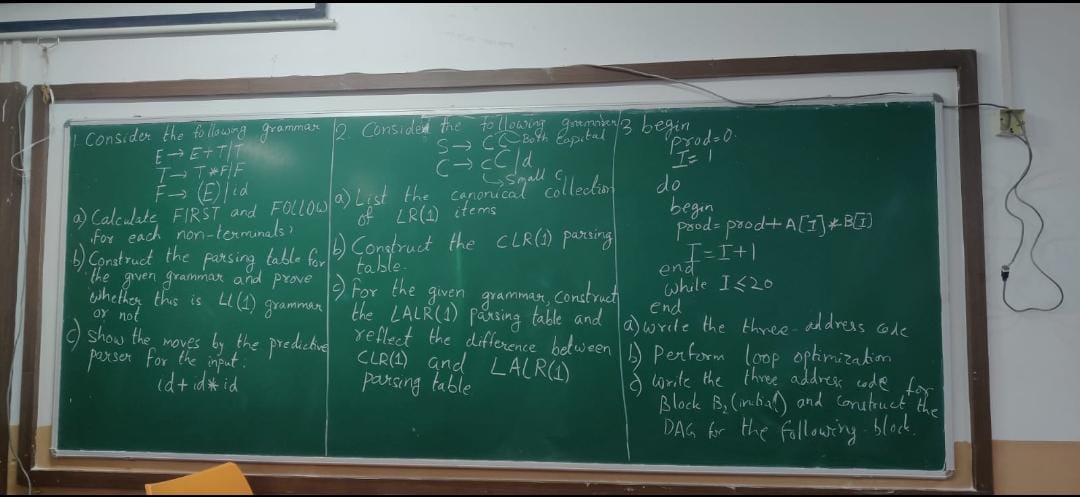 1. Consider the following grammar
E → E+T|T
T → T*F|F
F → (E)|id
a) Calculate FIRST and FOLLOW
for each non-terminals?
b) Construct the parsing table for
the given grammar and prove
whether this is LL(1) grammar
or not
c) Show the moves by the predictive
parser for the input:
id+id*id
2. Consider the following grammar
S → CC Both Capital
C → cC|d
↳ Small c
a) List the canonical collection
of LR(1) items
b) Construct the CLR(1) parsing
table.
c) For the given grammar, construct
the LALR(1) parsing table and
reflect the difference between
CLR(1) and LALR(1)
parsing table
3 begin
prod=0.
I=1
do
begin
prod=prod+A[I]*B[I]
I=I+1
end
while I≤20
end
a) write the three-address code
b) Perform loop optimization
c) Write the three address code for
Block B₂(initial) and construct the
DAG for the following block.